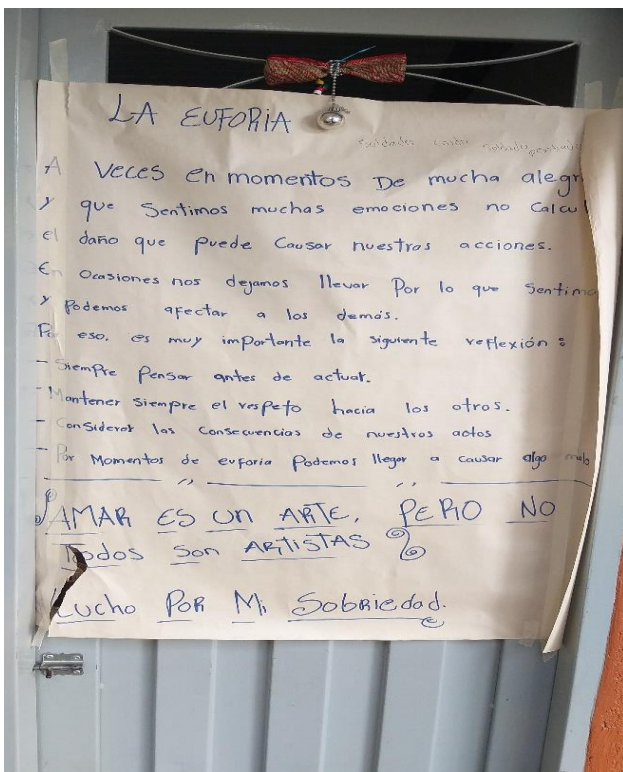 LA EUFORIA
A veces en momentos De mucha alegr
y que Sentimos muchas emociones no Calcul
el daño que puede Causar nuestras acciones.
En Ocasiones nos dejamos llevar Por lo que Sentimo
y Podemos afectar a los demás.
Po eso. es muy importante la siguiente reflexión:
- Siempre Pensar antes de actuar.
- Mantener Siempre el respeto hacia los otros.
- Considerar las Consecuencias de nuestros actos
- Por Momentos de euforia Podemos llegar a causar algo malo
AMAR ES Un ARTE, PERO NO
Todos Son ARTISTAS
Lucho POR Mi SobRiedad.